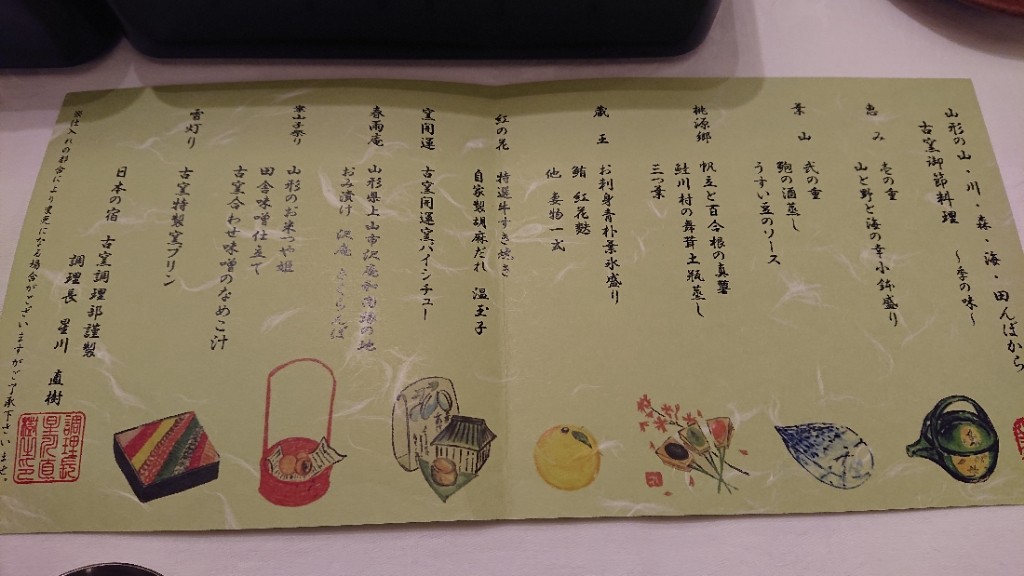 山形の山・川・森・海・田んぼから
古窯御節料理 ～季の味～
恵み 壱の重
山と野と海の幸小鉢盛り
葉山 弐の重
鮑の酒蒸し
うすい豆のソース
桃源郷 帆立と百合根の真薯
鮭川村の舞茸土瓶蒸し
三つ葉
蔵王 お刺身青朴葉氷盛り
鮪 紅花麩
他 妻物一式
紅の花 特選牛すき焼き
自家製胡麻だれ 温玉子
窯開運 古窯開運窯パイシチュー
春雨庵 山形県上山市沢庵和尚縁の地
おみ漬け 沢庵 さくらんぼ
案山子祭り 山形のお米つや姫
田舎味噌仕立て
古窯合わせ味噌のなめこ汁
雪灯り 古窯特製窯プリン
日本の宿 古窯調理部謹製
調理長 星川 直樹
仕入れの都合により変更になる場合がございますがご了承下さいませ。